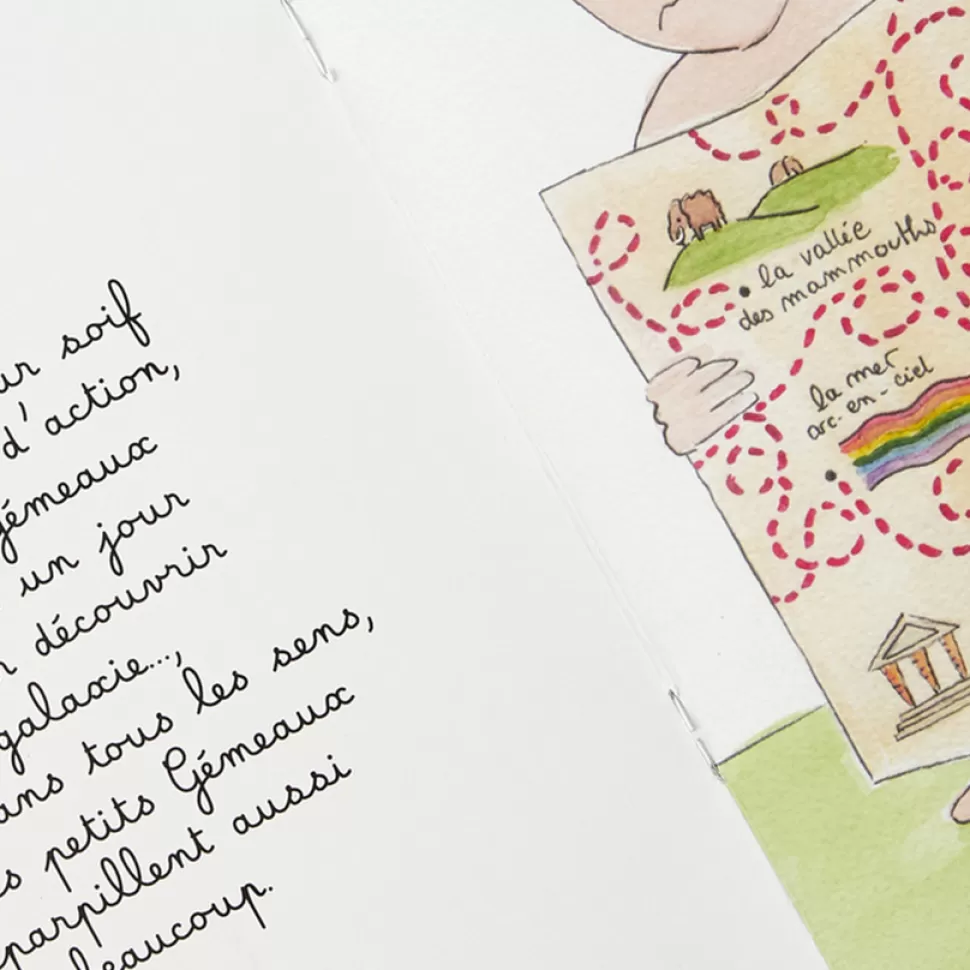 soif
d'action,
gémeaux
un jour
découvrir
galaxie...,
tous les sens,
petits Gémeaux
aussi
beaucoup.
la vallée
des mammouths
la mer
arc-en-ciel